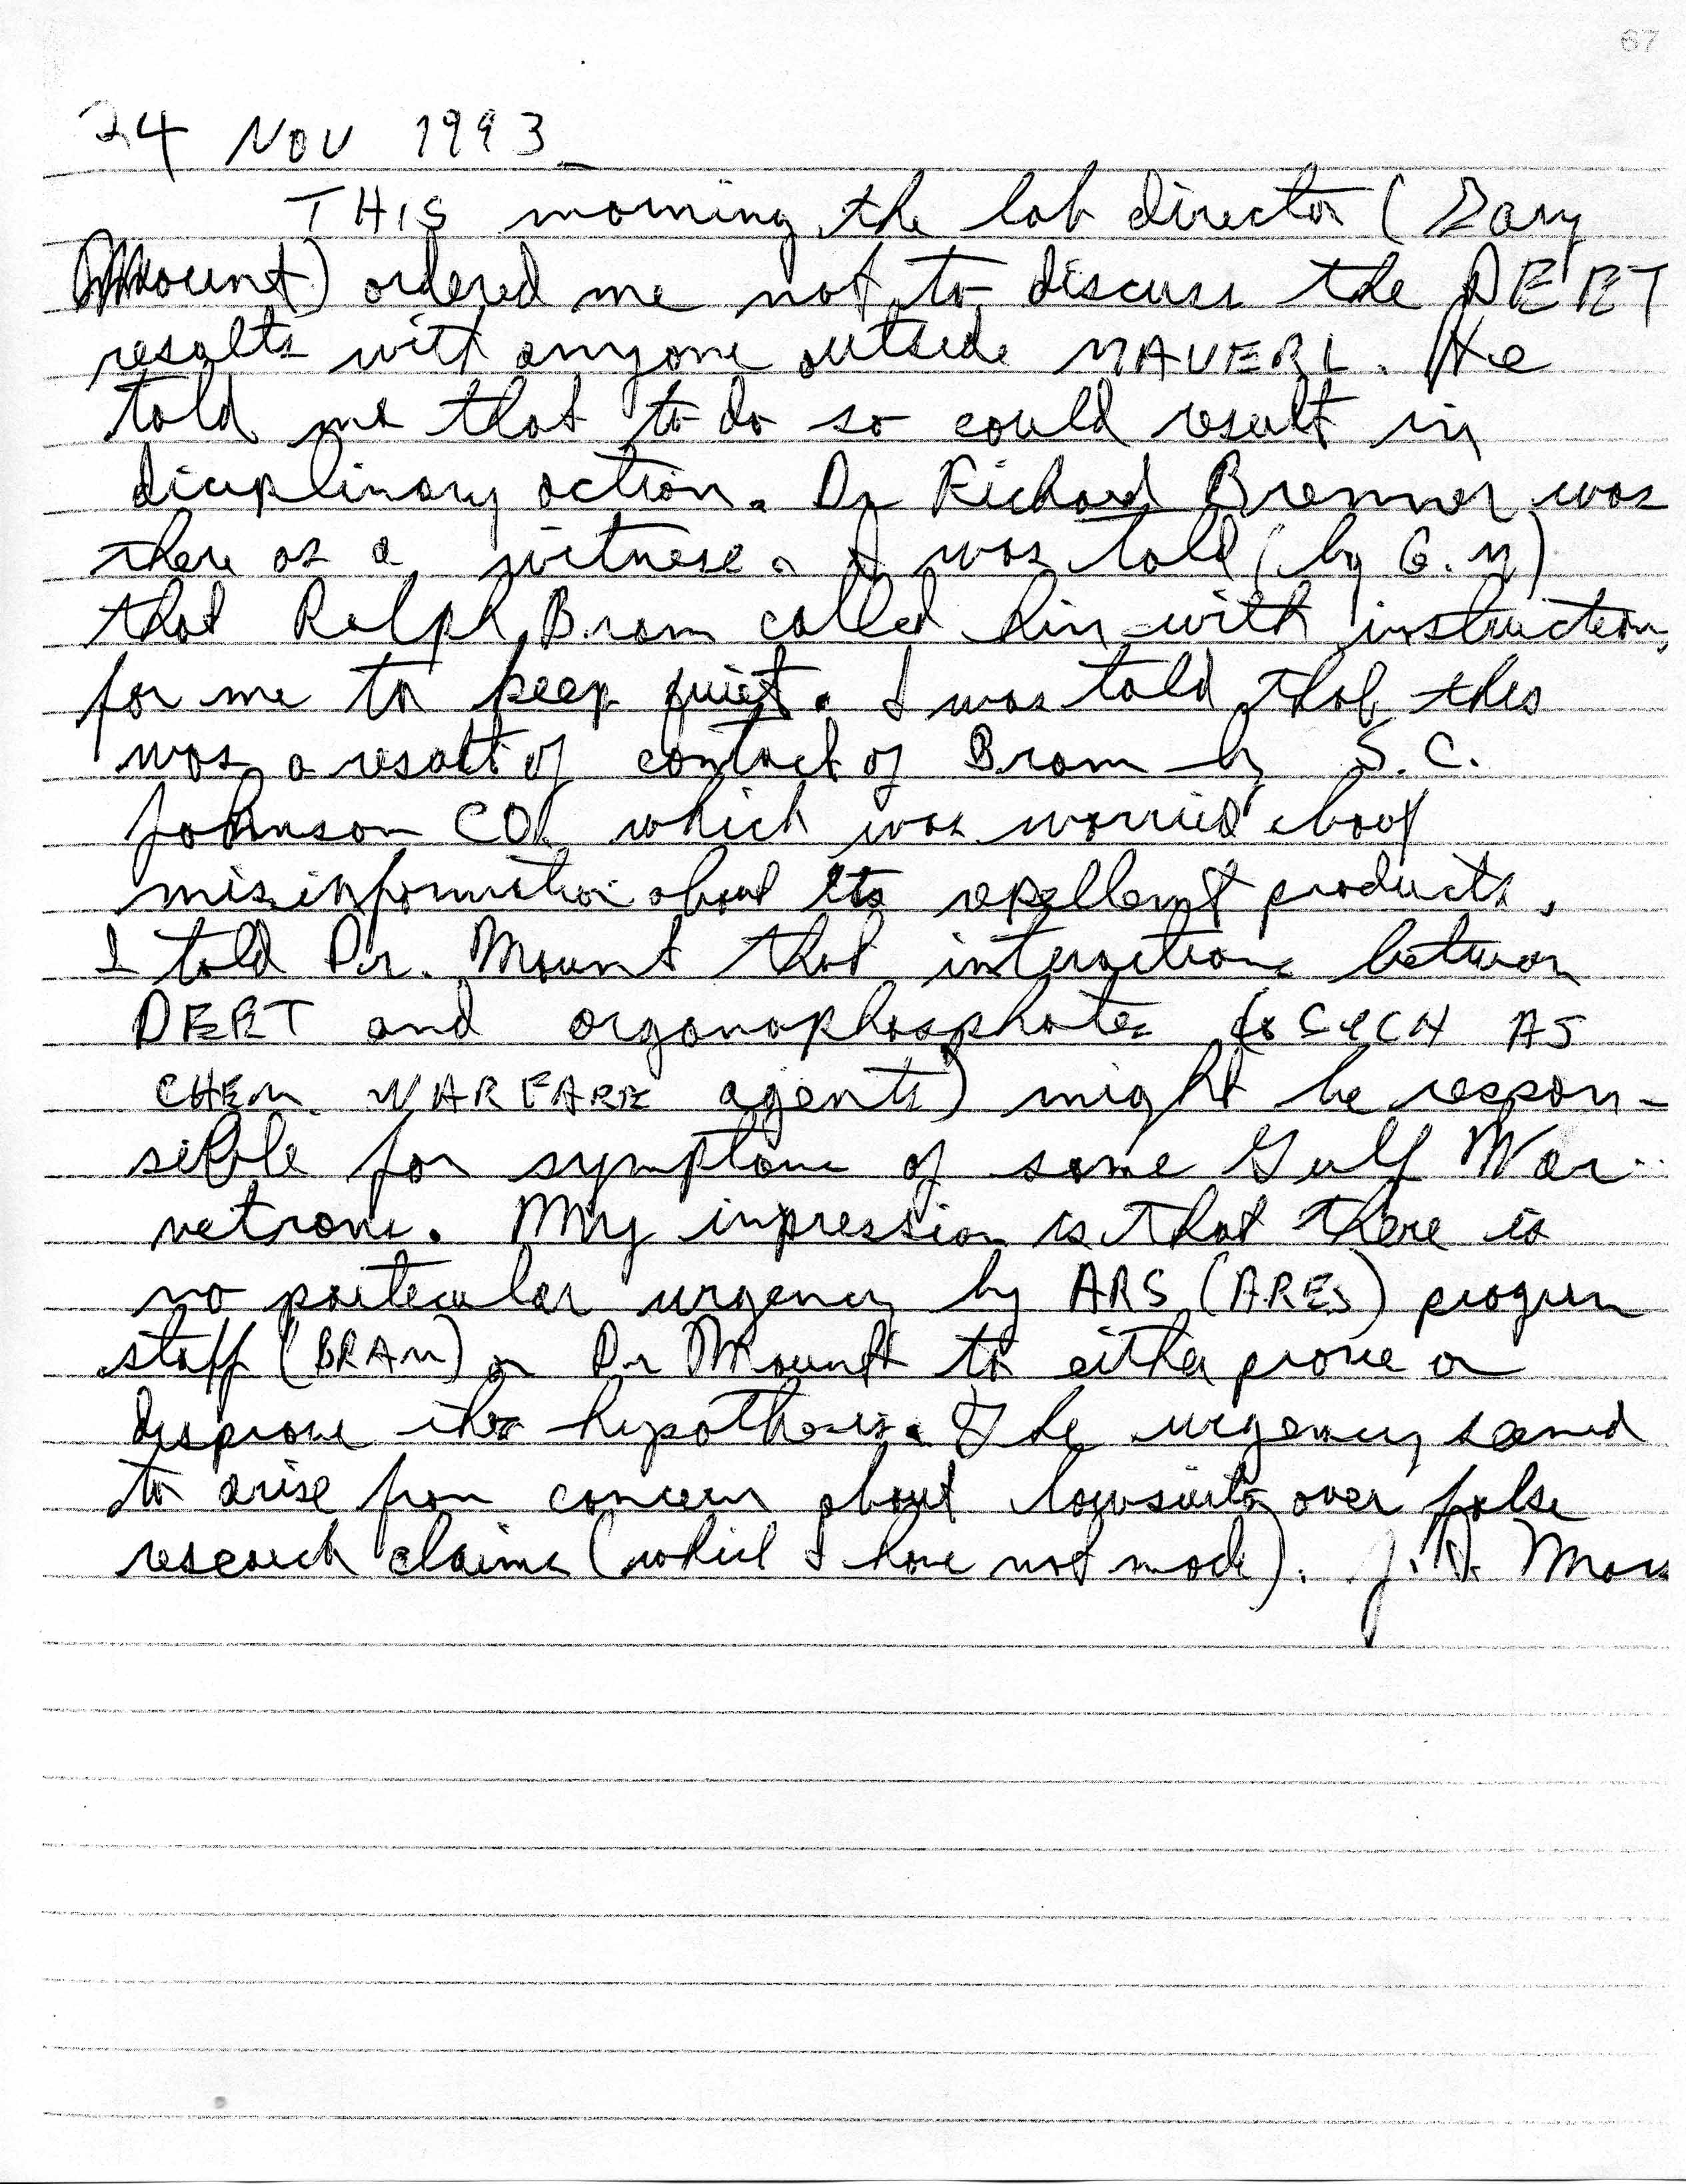 67
24 NOV 1993
THIS morning the lab director (Gary
Mount) ordered me not to discuss the DEET
results with anyone outside MAVERL. He
told me that to do so could result in
diciplinary action. Dr Richard Brenner was
there as a witness. I was told (by G.M)
that Ralph Bram called him with instructions
for me to keep quiet. I was told that this
was a result of contact of Bram by S.C.
Johnson CO. which was worried about
misinformation about its repellent products.
I told Dr. Mount that interactions between
DEET and organophosphates (SUCH AS
CHEM. WARFARE agents) might be respon-
sible for symptoms of some Gulf War
vetrans. My impression is that there is
no particular urgency by ARS (ARES) program
staff (BRAM) or Dr Mount to either prove or
disprove this hypothesis. The urgency seemed
to arise from concern about lawsuits over false
research claims (which I have not made). J.